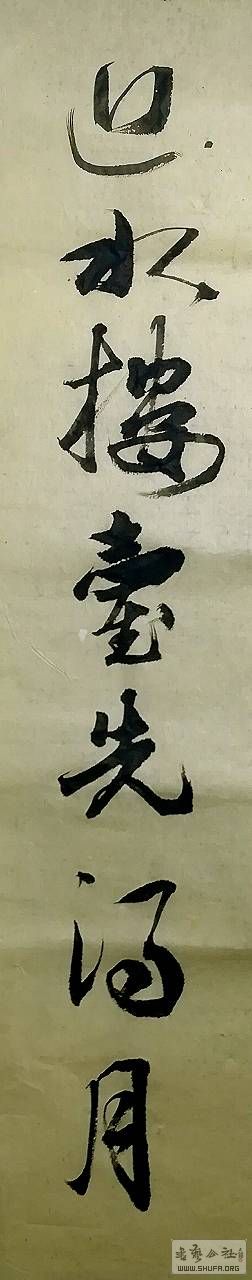 近水樓臺先得月
書藝公社
WWW.SHUFA.ORG